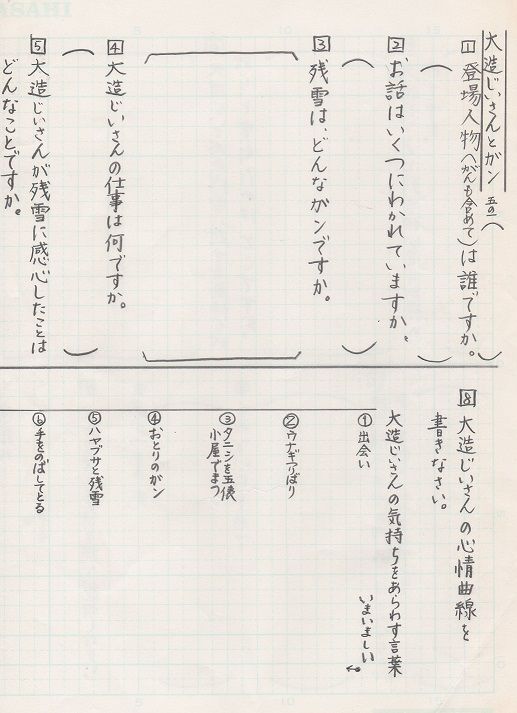 大造じいさんとガン 五の一（　　　）
1 登場人物（がんも含めて）は誰ですか。
（　　　）
2 お話はいくつにわかれていますか。
（　　　）
3 残雪は、どんなガンですか。
4 大造じいさんの仕事は何ですか。
（　　　）
5 大造じいさんが残雪に感心したことは
どんなことですか。
8 大造じいさんの心情曲線を
書きなさい。
大造じいさんの気持ちをあらわす言葉
① 出会い
いまいましい
② ウナギつりばり
③ タニシを五俵
小屋でまつ
④ おとりのガン
⑤ ハヤブサと残雪
⑥ 手をのばしてとる
ASAHI
5
10
15
5
10
15